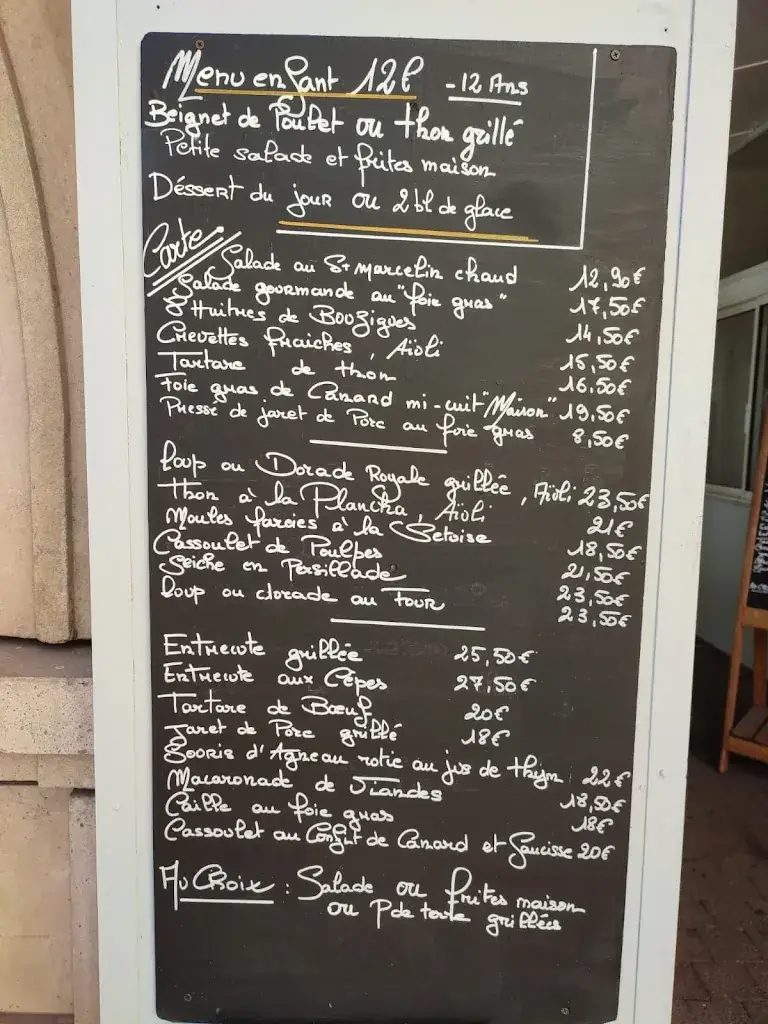 Menu enfant 12€ - 12 Ans
Beignet de Poulet ou thon grillé
Petite salade et frites maison
Déssert du jour ou 2 bl de glace
Carte
Salade au St marcelin chaud 12,90€
Salade gourmande au "foie gras" 17,50€
Huitres de Bouzigues 14,50€
Crevettes fraiches, Aïoli 15,50€
Tartare de thon 16,50€
Foie gras de Canard mi-cuit "Maison" 19,50€
Presse de jaret de Porc au foie gras 8,50€
Loup ou Dorade Royale grillée, Aïoli 23,50€
Thon à la Plancha, Aïoli 21€
Moules farcies à la Setoise 18,50€
Cassoulet de Poulpes 21,50€
Seiche en Persillade 23,50€
Loup ou dorade au FOUR 23,50€
Entrecote grillée 25,50€
Entrecote aux Cèpes 27,50€
Tartare de Bœuf 20€
Jaret de Porc grillé 18€
Souris d'Agneau rotie au jus de thym 22€
Macaronade de Viandes 18,50€
Caille au foie gras 18€
Cassoulet au Confit de Canard et Saucisse 20€
Au Choix : Salade ou frites maison
ou P de terre grillées